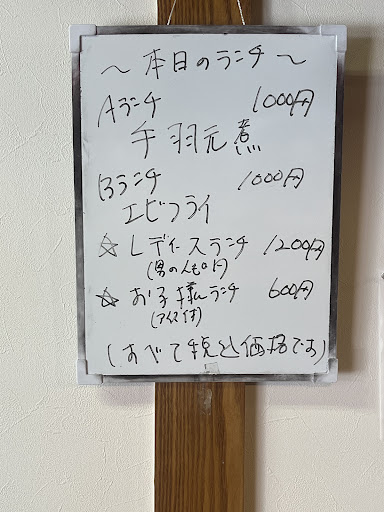 ～本日のランチ～
Aランチ 1000円
手羽元煮
Bランチ 1000円
エビフライ
☆レディースランチ 1200円
(男の人もOK)
☆お子様ランチ 600円
(アイス付)
(すべて税込価格です)